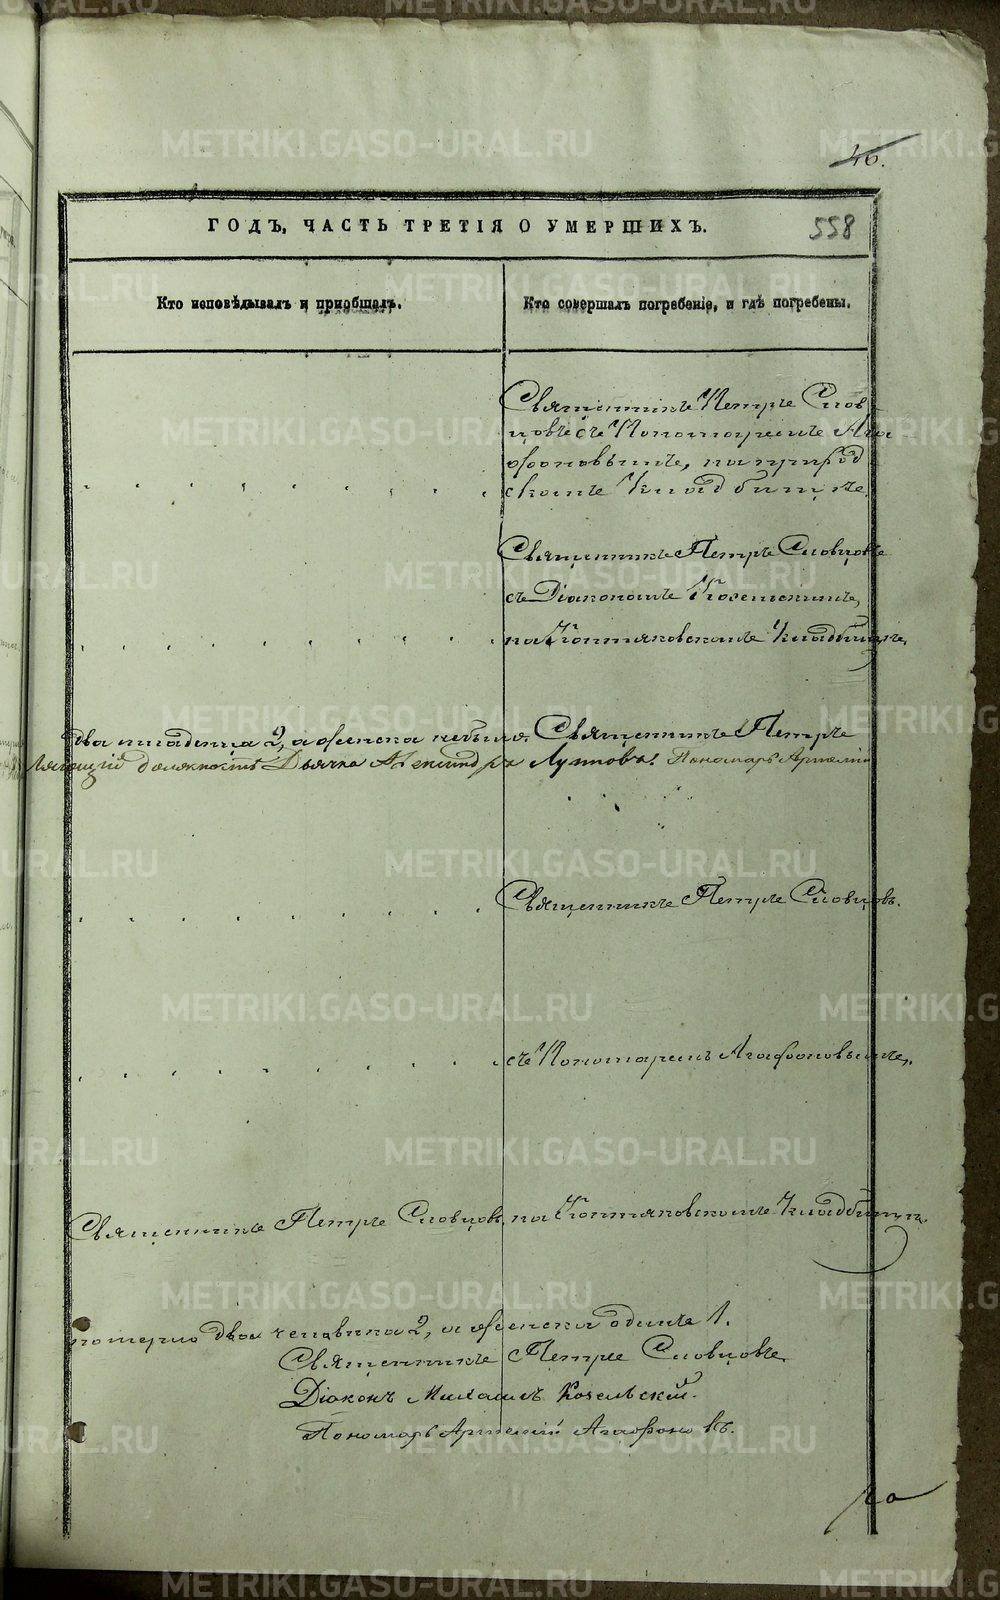 46.
ГОДЪ, ЧАСТЬ ТРЕТІЯ О УМЕРШИХЪ.
558
Кто исповѣдывалъ и пріобщалъ.
Кто совершалъ погребеніе, и гдѣ погребены.
Священникъ Петръ Слов
цовъ съ Пономаремъ Ага
фоновымъ, на приход
скомъ Кладбищѣ.
Священникъ Петръ Словцовъ
съ Діакономъ Козельскимъ,
на Коптяковскомъ Кладбищѣ,
два младенца 2, а женска небыло. Священникъ Петръ
должность Дьячка Александръ Лупповъ. Пономарь Артемій
Священникъ Петръ Словцовъ.
съ Пономаремъ Агафоновымъ,
Священникъ Петръ Словцовъ, на Коптяковскомъ Кладбищѣ
померло два человѣка 2, а женска одинъ 1.
Священникъ Петръ Словцовъ
Діаконъ Михаилъ Козельскій.
Пономарь Артемій Агафоновъ.
METRIKI.GASO-URAL.RU